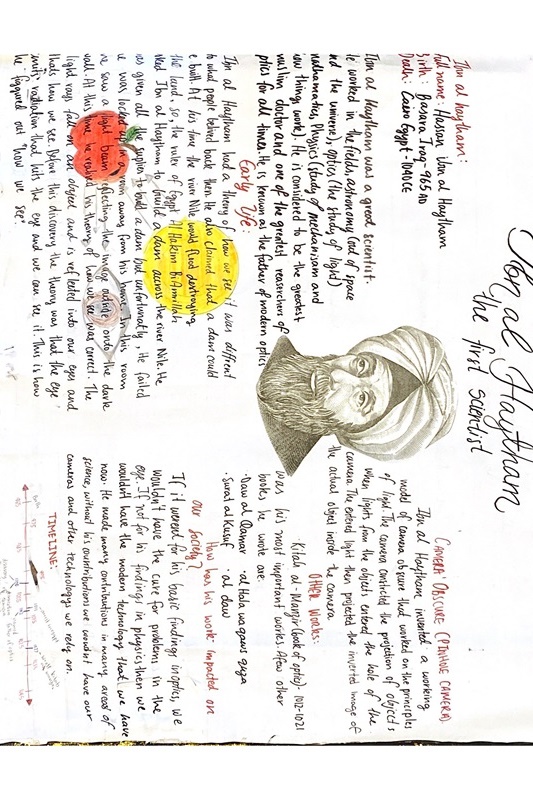 Ibn al Haytham
the first scientist
Ibn al haytham:
Full name: Hassan Ibn al Haytham
Birth: Basara Iraq-965AD
Death: Cairo Egypt-1040CE
Ibn al Haytham was a great scientist.
He worked in the fields, astronomy (and of space
and the universe), optics (the study of light)
mathematics, Physics (study of mechanisam and
how things work). He is considered to be the greatest
muslim doctor and one of the greatest reasirchers of
optics for all times. He is known as the father of modern optics
Early Life:
Ibn al Haytham had a theory of how we see it was diffrent
to what people behind back then. He also claimed that a dam could
e built. At his time the river Nile would flood destroying
the land. So, the ruler of Egypt Al Hakim Bi Amrillah
ked Ibn al Haytham to build a dam across the river Nile. He
as given all the supplies to build a dam but unfortunately, he failed
e was locked up in a room away from his home. In his room
he saw a light beam reflecting the image outside onto the dark
wall. At this time he realised his theory of how we see was correct. The
light rays fall on an object and is reflected into our eyes and
thats how we see. Before this discovery the theory was that the eye
emits radiation that hits the eye and we can see it. This is how
he figgured out "how we see"
CAMERA OBSCURE (PINHOLE CAMERA)
Ibn al Haytham invented a working
model of camera obscure that worked on the principles
of light. The camera constricted the projection of objects
when light from the objects entered the hole of the
camera. The entered light then projected the inverted image of
the actual object inside the camera
OTHER WORKS:
Kitab al-Manzir (book of optics)-1012-1021
was his most important works. A few other
books he wrote are:
·Daw al Qamar ·al Hala waqaws quza
·Surat al Kusuf ·al daw
How has his work impacted on
our society?
If it werend for his basic findings in optics, we
wouldn't have the cure for problems in the
eye. If not for his findings in physics then we
wouldn't have the modern technology that we have
now. He made many contributions in many areas of
science, without his countributions we wouldnt have our
cameras and other technologys we rely on.
TIMELINE: